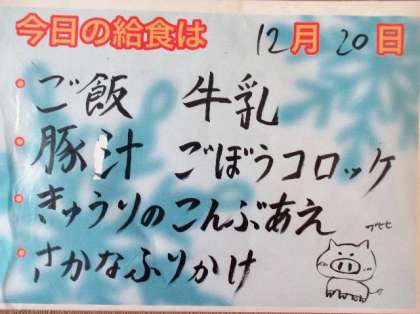 今日の給食は 12月 20日
ご飯 牛乳
豚汁 ごぼうコロッケ
きゅうりのこんぶあえ
ブヒヒ
さかなふりかけ